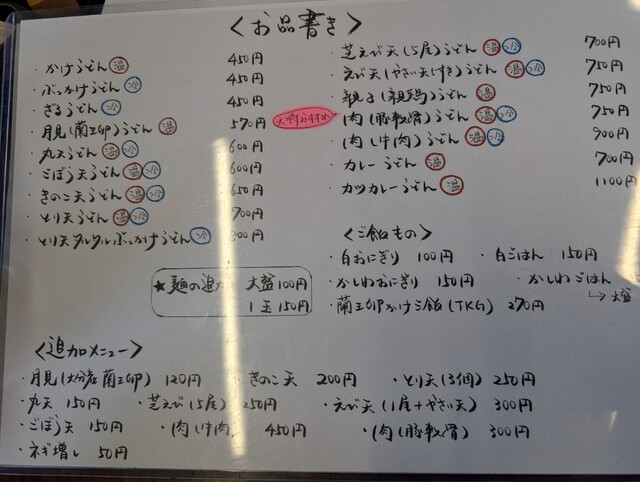 ＜お品書き＞
・かけうどん 温 450円
・ぶっかけうどん 冷 450円
・ざるうどん 冷 450円
・月見(蘭王卵)うどん 温 570円
・丸天うどん 温 冷 600円
・ごぼう天うどん 温 冷 600円
・きのこ天うどん 温 冷 650円
・とり天うどん 温 冷 700円
・とり天タルタルぶっかけうどん 冷 800円
★麺の追加 大盛100円
1玉150円
・芝えび天(5尾)うどん 温 冷 700円
・えび天(やさい天付き)うどん 温 冷 750円
・親子(親鶏)うどん 温 750円
おすすめ
・肉(豚軟骨)うどん 温 冷 750円
・肉(牛肉)うどん 温 冷 900円
・カレーうどん 温 700円
・カツカレーうどん 温 1100円
＜ご飯もの＞
・白おにぎり 100円 ・白ごはん 150円
・かしわおにぎり 150円 ・かしわごはん
・蘭王卵かけご飯(TKG) 270円 →大盛
＜追加メニュー＞
・月見(大分産蘭王卵) 120円 ・きのこ天 200円 ・とり天(3個) 250円
・丸天 150円 ・芝えび(5尾) 250円 ・えび天(1尾+やさい天) 300円
・ごぼう天 150円 ・肉(牛肉) 450円 ・肉(豚軟骨) 300円
・ネギ増し 50円